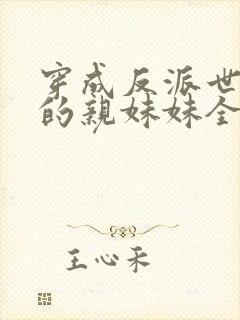 穿成反派世
的親妹妹全
王心禾